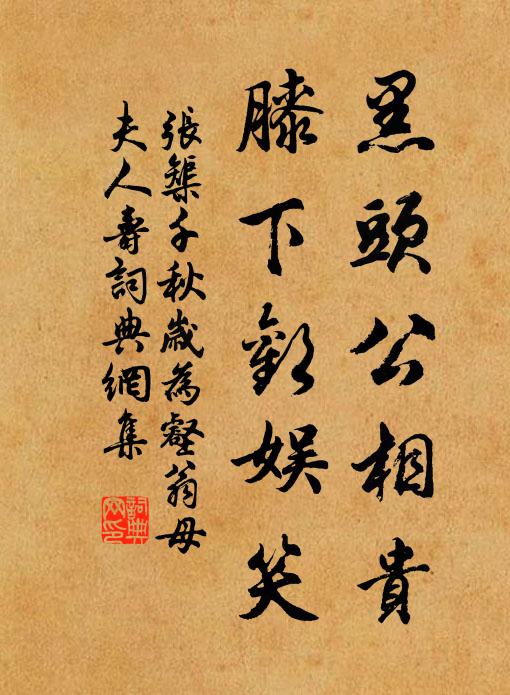 黑頭公相貴
膝下歡娛笑
張榘千秋歲為壑翁母
夫人壽詞典網集
詞典網印